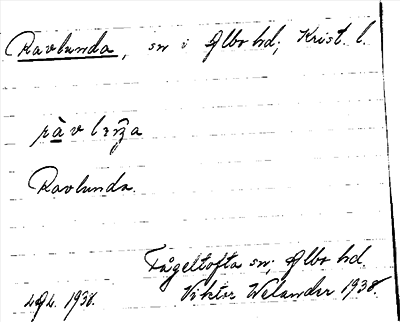 Ravlunda, sn i Albo hd; Krist. l.
Ravlunda.
Fågeltofta sn; Albo hd.
1938. Viktor Welander 1938.